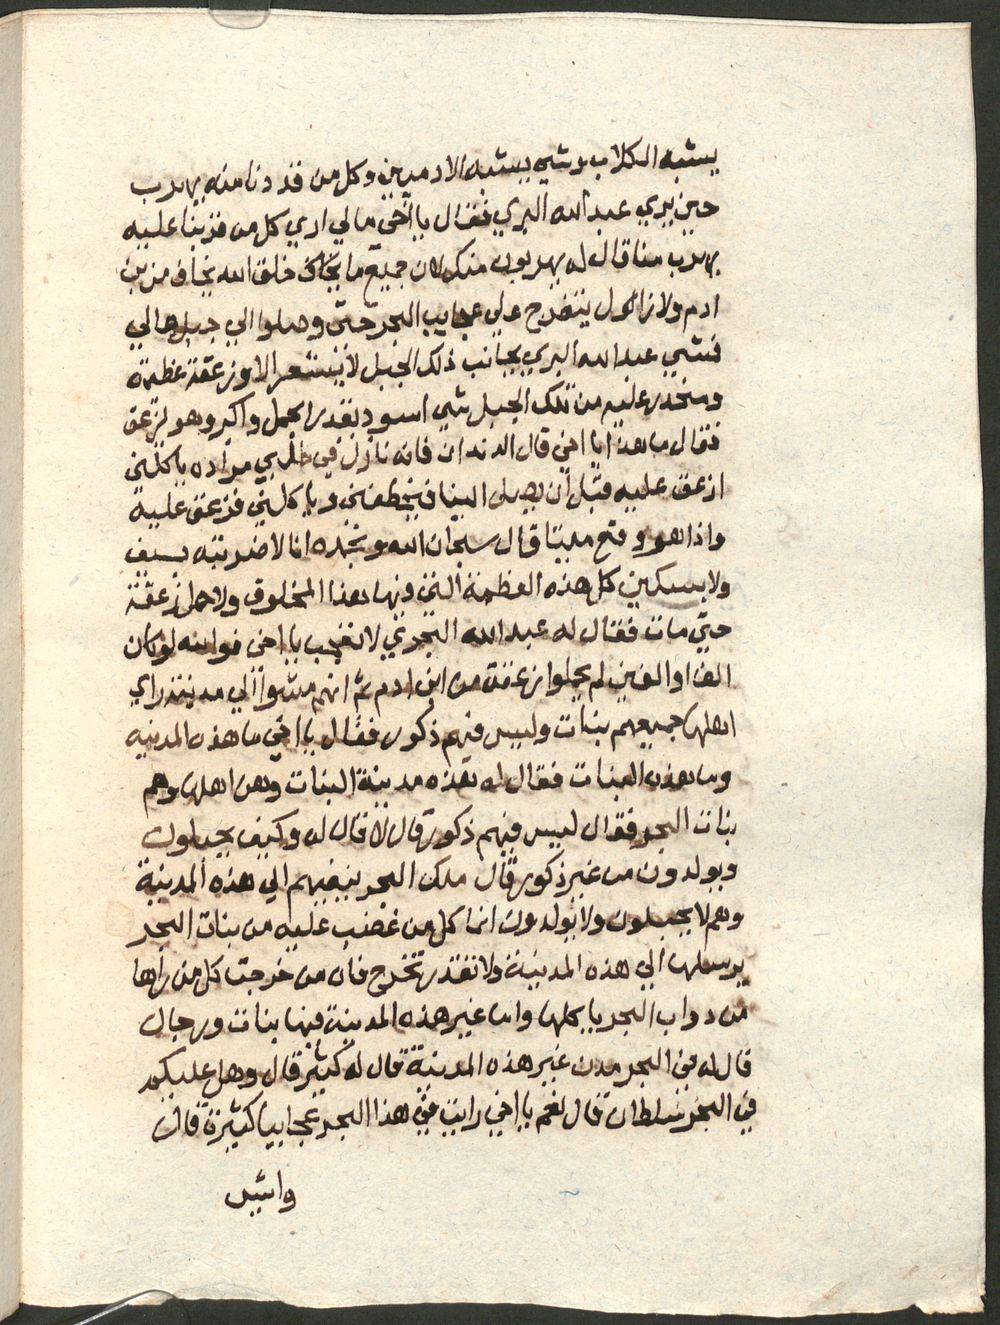 يشبه الكلاب وشي يشبه الادميين وكل من قد دنا منه يهرب
حين يري عبد الله البري فقال يا اخي مالي اري كل من قربنا عليه
يهرب منا قال له يهربون منك لان جميع ما يخاف خلق الله يخاف من بن
ادم ولا زالول يتفرج علي عجايب البحر حتي وصلوا الي جبل عالي
فمشي عبد الله البري بجانب ذلك الجبل لا يشعر الا وزعقة عظيمة
ومنحدر عليه من تلك الجبل شي اسود بقدر الجمل واكبر وهو يزعق
فقال ما هذا يا اخي قال الدندان فانه نازل في طلبي مراده ياكلني
ازعق عليه قبل ان يصل الينا فيخطفني وياكلني فزعق عليه
واذا هو وقع ميتا قال سبحان الله وبحمده انا لا ضربته بسيف
ولا بسكين كل هذه العظمة التي فيها هذا المخلوق ولا حمل زعقة
حتي مات فقال له عبد الله البحري لا تعجب يا اخي فوالله لو كان
الفا او الفين لم يحملوا زعقة من ابن ادم ثم انهم مشوا الي مدينة راي
اهلها جميعهم بنات وليس فيهم ذكور فقال يا اخي ما هذه المدينه
وما هذه البنات فقال له هذه مدينة البنات وهن اهلها وهم
بنات البحر فقال ليس فيهم ذكور قال لا قال له وكيف يحبلون
ويولدون من غير ذكور قال ملك البحر ينفيهم الي هذه المدينة
وهم لا يحبلون ولا يولدون انما كل من غضب عليه من بنات البحر
يرسلها الي هذه المدينة ولا تقدر تخرج فان من خرجت كل من راها
من دواب البحر ياكلها واما غير هذه المدينة فيها بنات ورجال
قال له في البحر مدن غير هذه المدينة قال له كثير قال وهل عليكم
في البحر سلطان قال نعم يا اخي رايت في هذا البحر عجايبا كثيرة قال
وايش